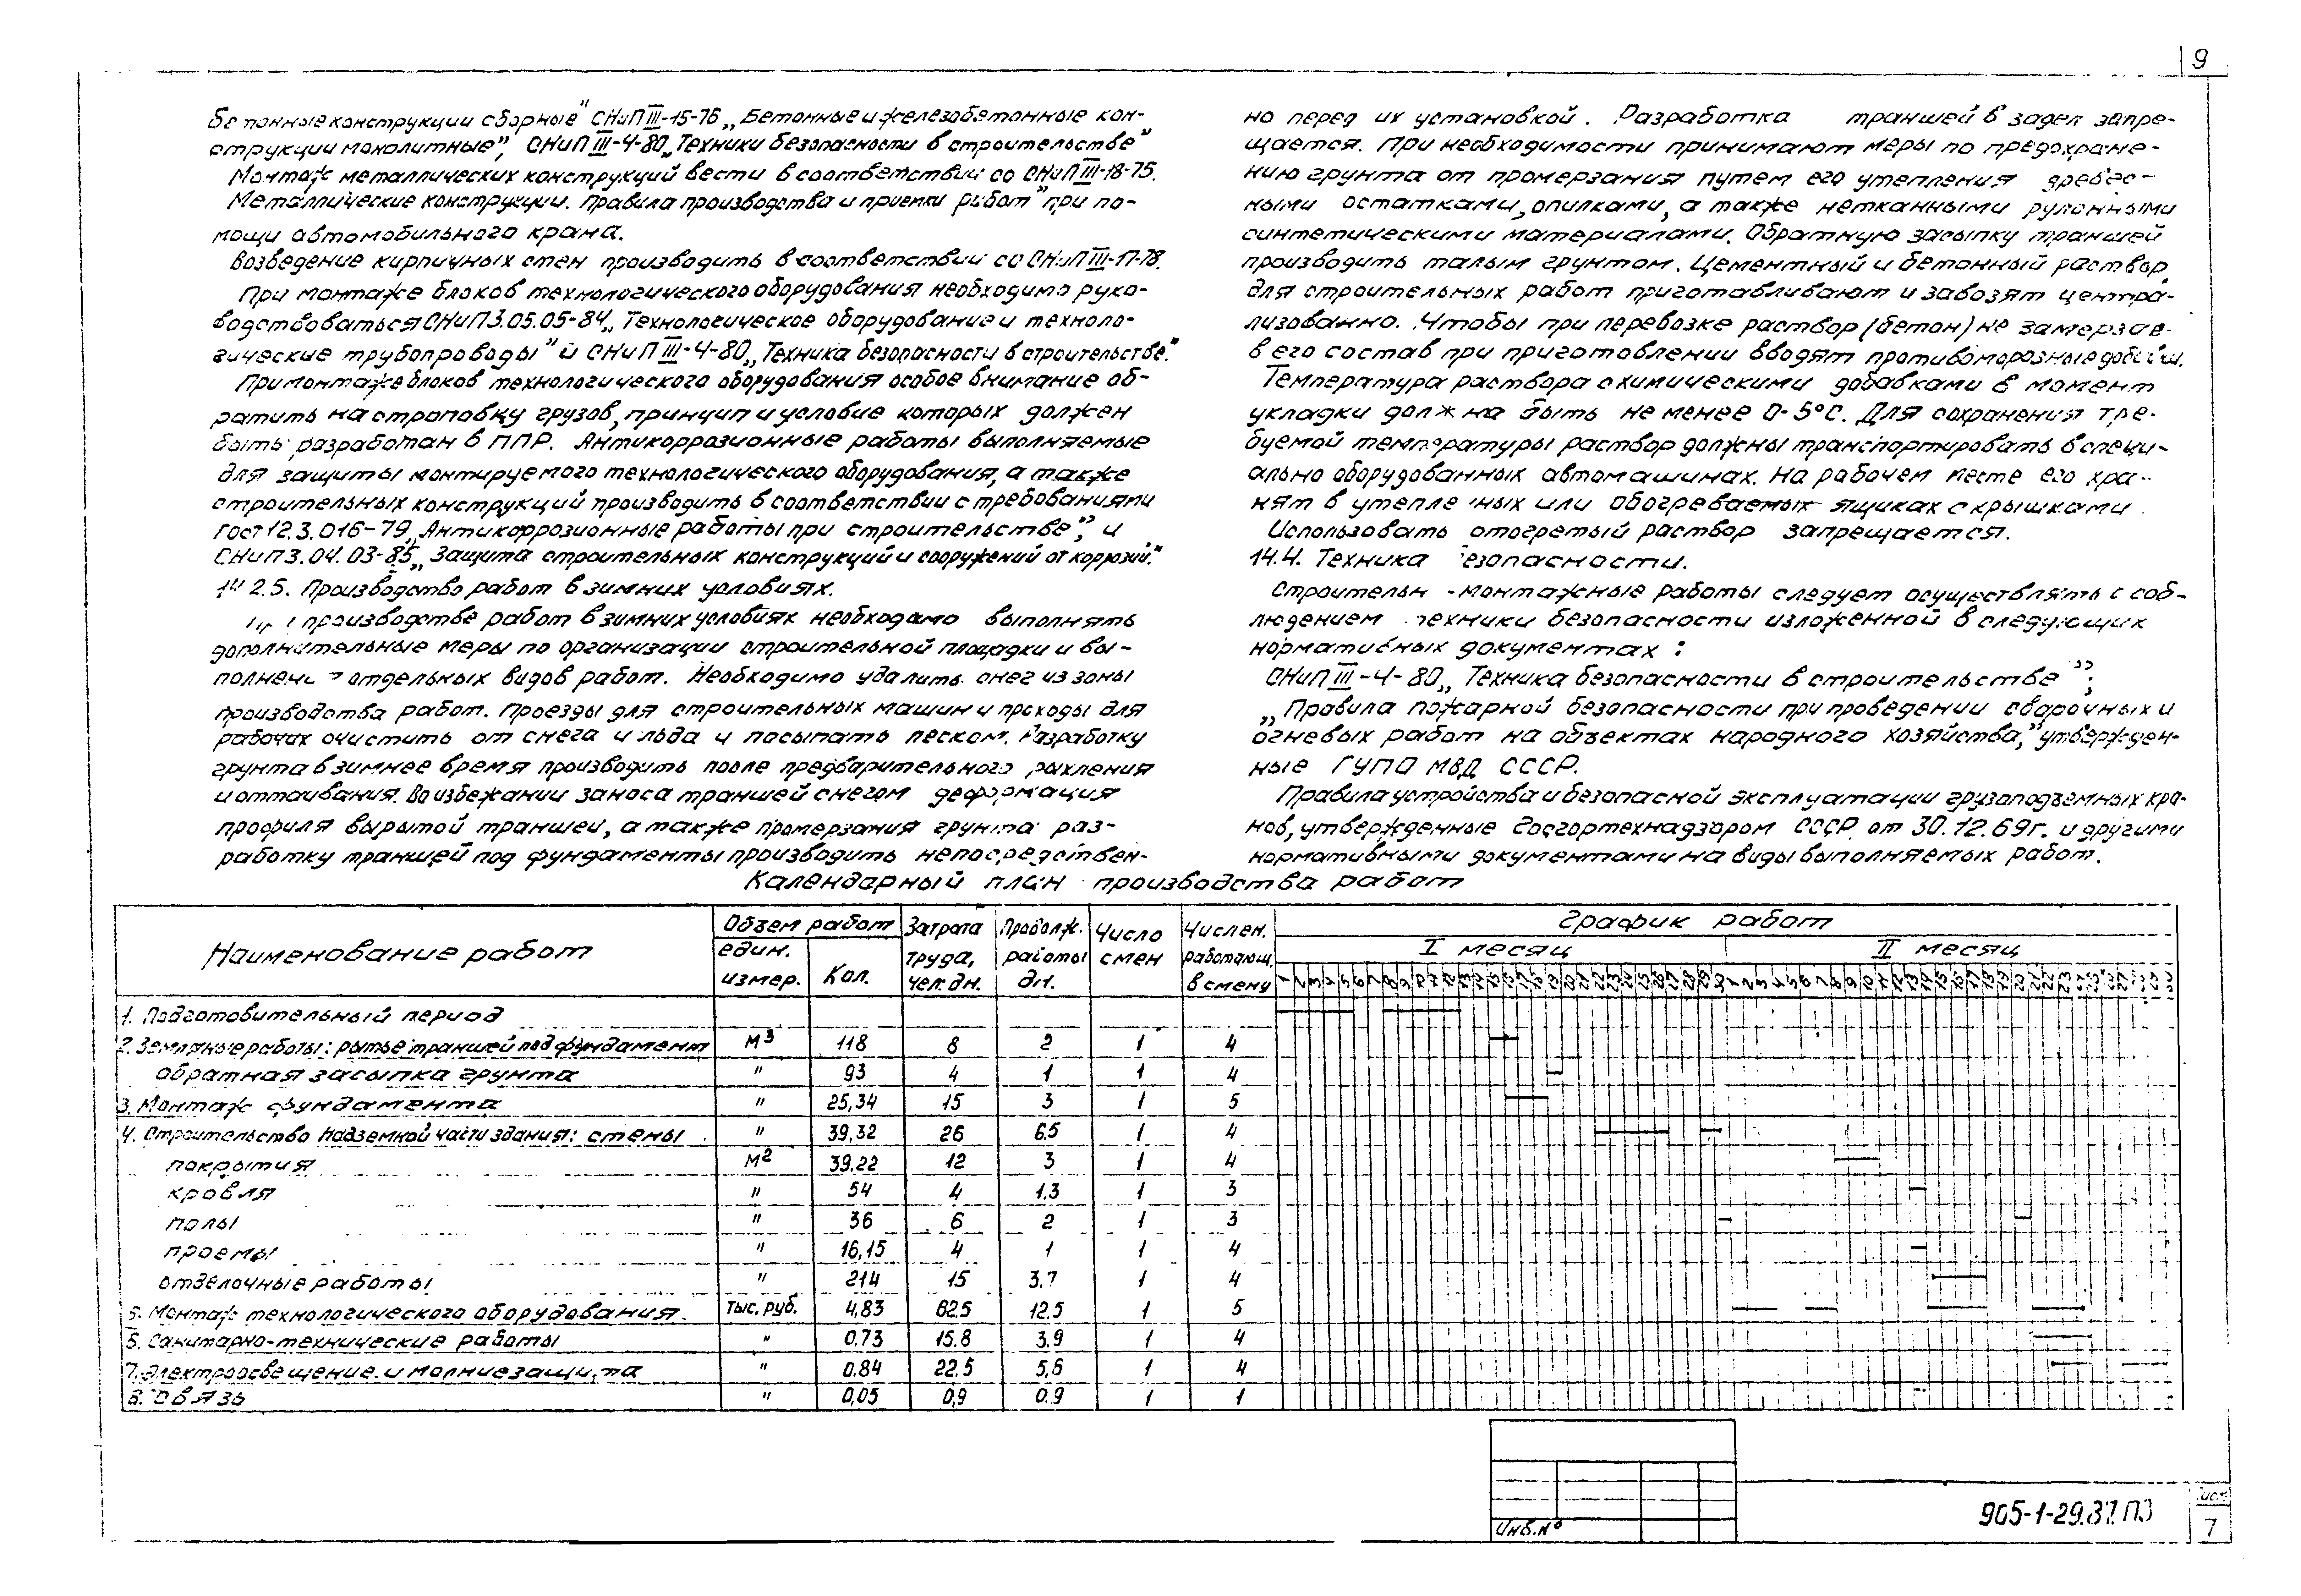 9
бетонные конструкции сборные" СНиП III-15-76 „Бетонные и железобетонные кон-
струкции монолитные", СНиП III-4-80 „Техники безопасности в строительстве"
Монтаж металлических конструкций вести в соответствии со СНиП III-18-75.
Металлические конструкции. Правила производства и приемки работ" при по-
мощи автомобильного крана.
Возведение кирпичных стен производить в соответствии со СНиП III-17-78.
При монтаже блоков технологического оборудования необходимо руко-
водствоваться СНиП 3.05.05-84 „Технологическое оборудование и техноло-
гические трубопроводы" и СНиП III-4-80 „Техника безопасности в строительстве."
При монтаже блоков технологического оборудования особое внимание об-
ратить на строповку грузов, принцип и условие которых должен
быть разработан в ППР. Антикоррозионные работы выполняемые
для защиты монтируемого технологического оборудования, а также
строительных конструкций производить в соответствии с требованиями
гост 12.3.016-79 „Антикоррозионные работы при строительстве", и
СНиП 3.04.03-85 „Защита строительных конструкций и сооружений от коррозий."
2.5. Производство работ в зимних условиях.
производстве работ в зимних условиях необходимо выполнять
дополнительные меры по организации строительной площадки и вы-
полнени отдельных видов работ. Необходимо удалить снег из зоны
производства работ. Проезды для строительных машин и проходы для
рабочих очистить от снега и льда и посыпать песком. Разработку
грунта в зимнее время производить после предварительного рыхления
и оттаивания. Во избежании заноса траншей снегом деформация
профиля вырытой траншеи, а также промерзания грунта раз-
работку траншей под фундаменты производить непосредствен-
но перед их установкой. Разработка траншей в задел запре-
щается. При необходимости принимают меры по предохране-
нию грунта от промерзания путем его утепления древес-
ными остатками, опилками, а также нетканными рулонными
синтетическими материалами. Обратную засыпку траншей
производить талым грунтом. Цементный и бетонный раствор
для строительных работ приготавливают и завозят центра-
лизованно. Чтобы при перевозке раствор (бетон) не замерзав
в его состав при приготовлении вводят противоморозные добавки.
Температура раствора с химическими добавками в момент
укладки должна быть не менее 0-5°С. Для сохранения тре-
буемой температуры раствор должны транспортировать в специ-
ально оборудованных автомашинах. На рабочем месте его хра-
нят в утепле ных или обогреваемых ящиках с крышками.
Использовать отогретый раствор запрещается.
14.4. Техника езопасности.
Строительн -монтажные работы следует осуществлять с соб-
людением техники безопасности изложенной в следующих
нормативных документах:
СНиП III-4-80 „Техника безопасности в строительстве";
„Правила пожарной безопасности при проведении сварочных и
огневых работ на объектах народного хозяйства," утвержден-
ные ГУПО МВД СССР.
Правила устройства и безопасной эксплуатации грузоподъемных кра-
нов, утвержденные Госгортехнадзором СССР от 30.12.69г. и другими
нормативными документами на виды выполняемых работ.
Календарный план производства работ
Наименование работ | Объем работ | Затрата труда, чел.дн. | Продолж. работы дн. | Число смен | Числен. работающ. в смену | График работ
един. измер. | Кол. | I месяц | II месяц
1. Подготовительный период
2. Земляные работы: рытье траншей под фундамент м3 118 8 2 1 4
обратная засыпка грунта " 93 4 1 1 4
3. Монтаж фундамента " 25,34 15 3 1 5
4. Строительство надземной части здания: стены " 39,32 26 6.5 1 4
покрытия м2 39.22 12 3 1 4
кровля " 54 4 1.3 1 3
полы " 36 6 2 1 3
проемы " 16,15 4 1 1 4
отделочные работы " 214 15 3.7 1 4
5. Монтаж технологического оборудования. тыс. руб. 4,83 62.5 12.5 1 5
6. Санитарно-технические работы " 0.73 15.8 3.9 1 4
7. Электроосвещение и молниезащита " 0.84 22.5 5,6 1 4
8. Связь " 0,05 0,9 0.9 1 1
Инв.№
905-1-29.87.ПЗ
Лист
7